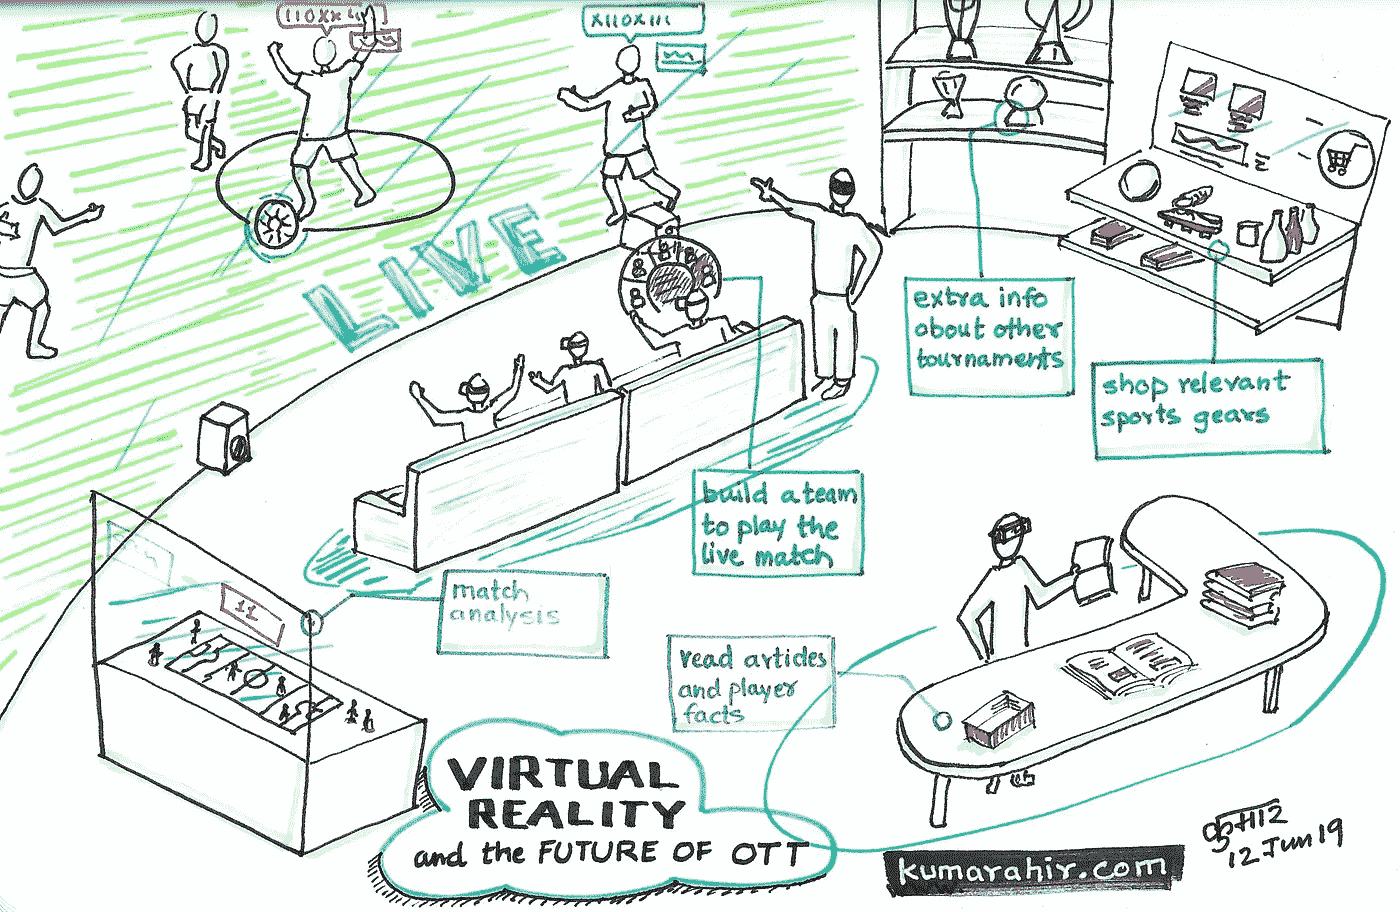 LIVE
extra info
about other
tournaments
shop relevant
sports gears
build a team
to play the
live match
match
analysis
read articles
and player
facts
11
VIRTUAL
REALITY
and the FUTURE OF OTT
kumarahir.com
12 Jun 19